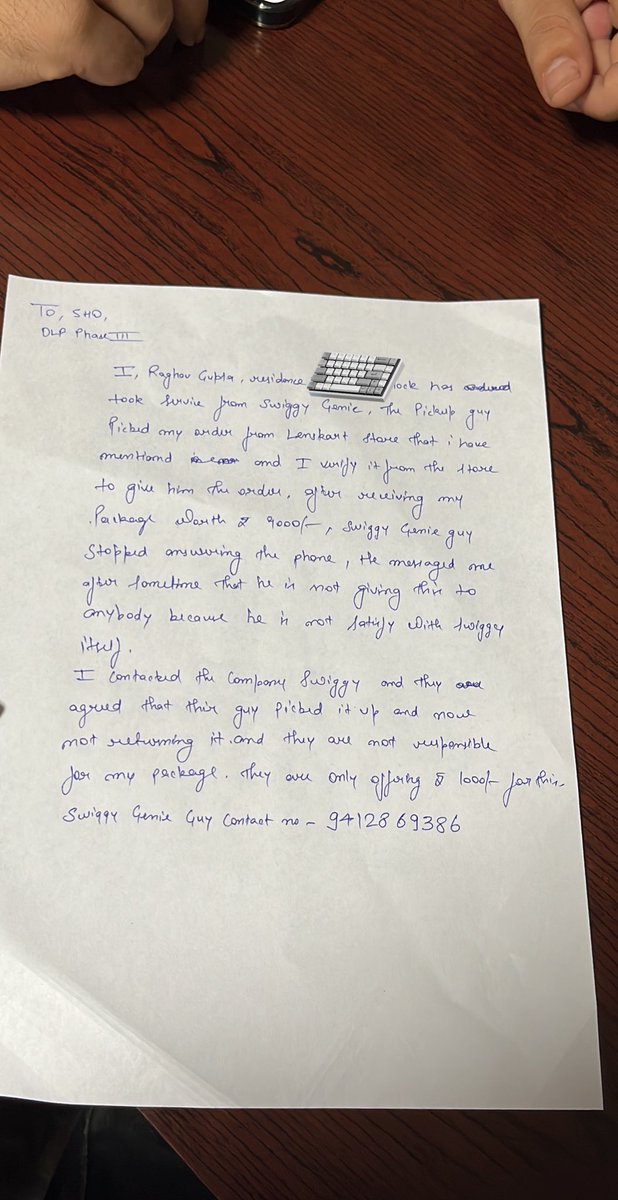 To, SHO,
DLP Phase III
I, Raghav Gupta, residence lock has
took service from Swiggy Genie, The Pickup guy
Picked my order from Lenskart store that i have
mentiond and I verify it from the store
to give him the order. after receiving my
Package Worth ₹ 9000/-, Swiggy Genie guy
Stopped answering the phone, He messaged me
after sometime that he is not giving this to
anybody because he is not Satisfy with Swiggy
itself.
I contacted the Company Swiggy and they
agreed that this guy Picked it up and now
not returning it. and they are not responsible
for my package. They are only offering ₹ 1000/- for this.
Swiggy Genie Guy Contact no - 9412869386